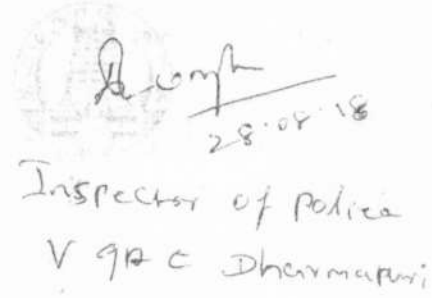 28.08.18
Inspector of police
V & AC Dharmapuri